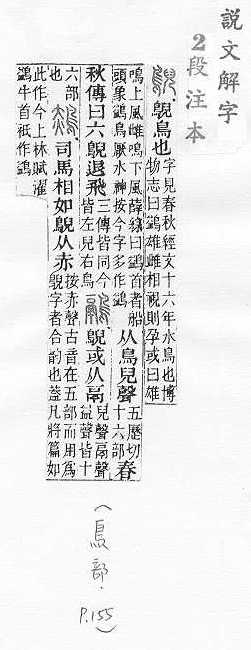 說文解字
2段注本
鶂鳥也字見春秋經文十六年水鳥也博
物志曰鷁雄雌相視則孕或曰雄
鳴上風雌鳴下風薛綜曰鷁首者船
頭象鷁鳥厭水神按今字多作鷁
从鳥兒聲五歷切
十六部春
秋傳曰六鶂退飛三傳皆同今
皆左兒右鳥
鷊鶂或从鬲兒聲鬲聲
益聲皆十
六部
司馬相如鶂从赤按赤聲古音在五部而用為
鶂字者合韵也葢凡將篇如
此作今上林賦濯
鷁牛首衹作鷁
(鳥部.P.155)